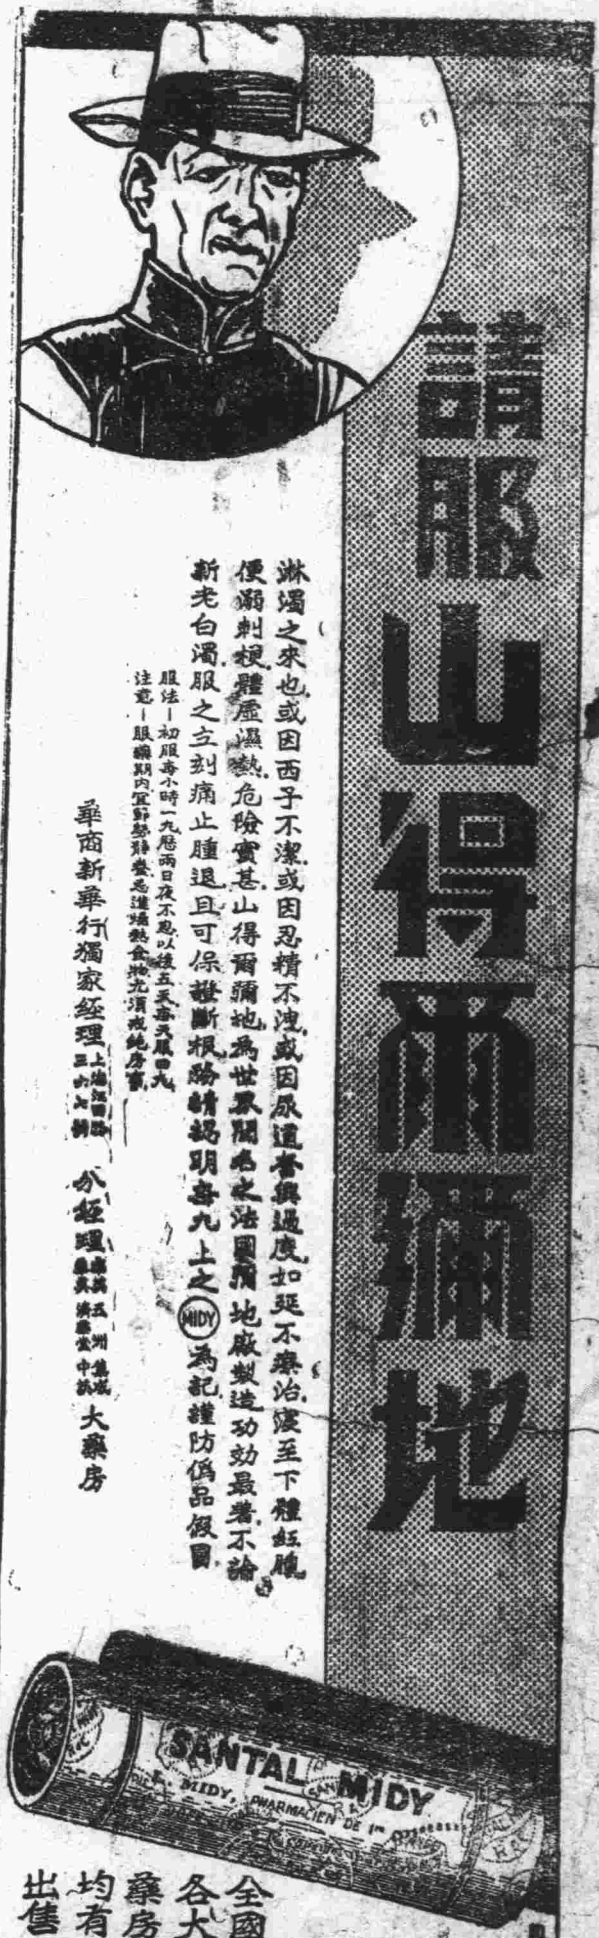 請服山得爾彌地
淋濁之來也或因西子不潔或因忍精不洩或因尿道奮興過度如延不療治濅至下體紅腫
便溺刺梗體虛濕熱危險實甚山得爾彌地為世界聞名之法國彌地廠製造功効最著不論
新老白濁服之立刻痛止腫退且可保證斷根務請認明每丸上之MIDY為記謹防偽品假冒
服法—初服每小時一丸歷兩日夜不息以後五天每天服四丸
注意—服藥期內宜節勞靜養忌進燥熱食物尤須戒絕房事
華商新華行獨家經理
上海江西路
三六七號
分經理
五洲 集成
中法
大藥房
SANTAL MIDY
MIDY, PHARMACIEN DE 1re
全國
各大
藥房
均有
出售